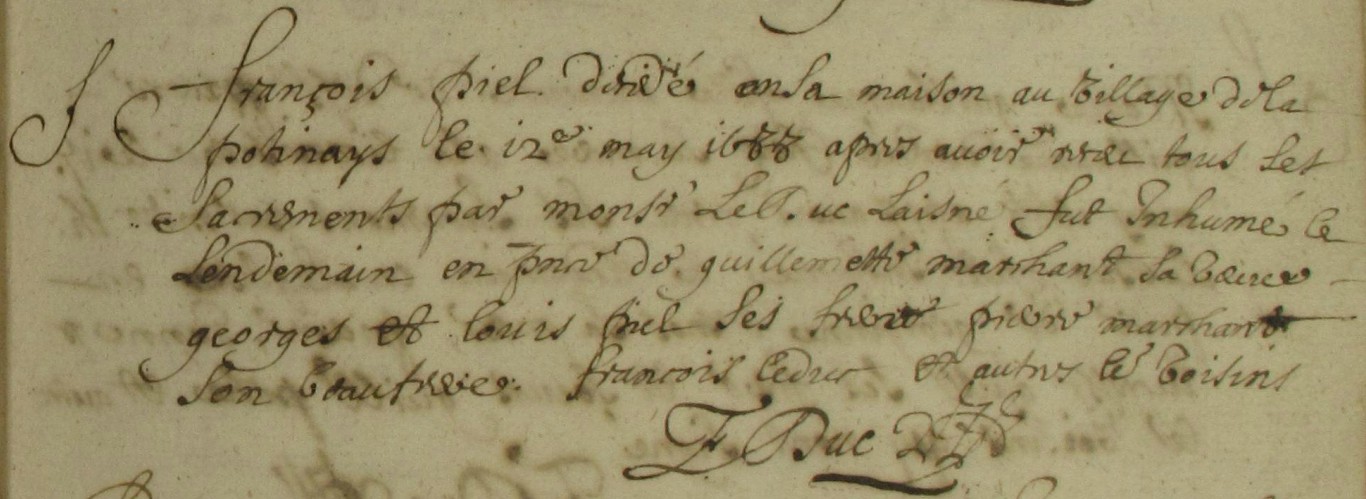 J François piel decedé en sa maison au village de la
potinays le 12e may 1688 apres avoir receu tous ses
sacrements par monsr Le Duc Laisné fut Inhumé le
lendemain en pnce de guillemette marchant sa veuve
georges et louis piel ses freres pierre marchant
son beaufrere francois leduc et autres voisins
F Duc